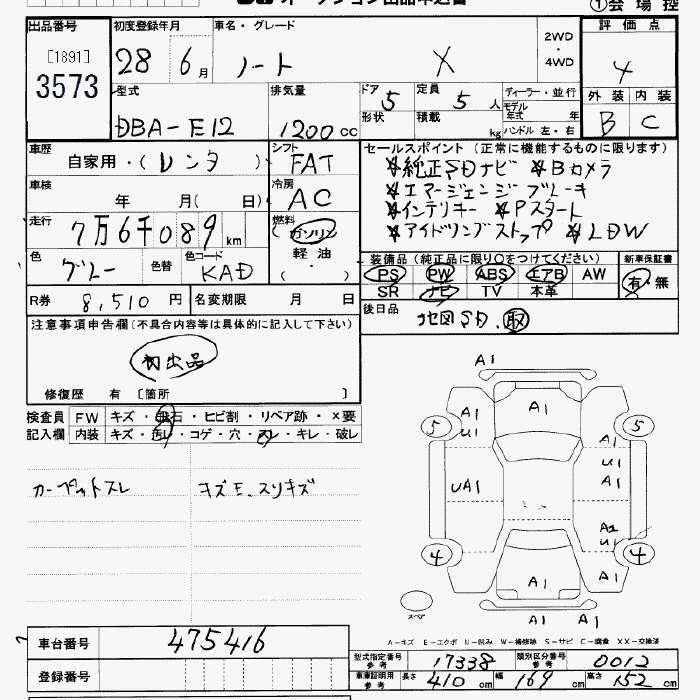 オークション出品申込書
①会場控
出品番号 初度登録年月 車名・グレード 評価点
[1891]
3573
28 6月 ノート X 2WD・4WD 4
外装 内装
B C
型式 排気量 ドア 定員 ディーラー・並行
DBA-E12 1200cc 5 5人
形状 積載 kg
モデル年式 年
ハンドル 左・右
車歴 シフト セールスポイント(正常に機能するものに限ります)
自家用・(レンタ) FAT
純正SDナビ Bカメラ
エマージェンシブレーキ
インテリキー Pスタート
アイドリングストップ LDW
車検 冷房
年 月(日) AC
走行 燃料
7万6千089km (ガソリン)
軽油・( )
色 色替 色コード
グレー KAD
装備品(純正品に限り○をつけてください) 新車保証書
PS PW ABS エアB AW
SR ナビ TV 本革
有・無
R券 8,510円 名変期限 月 日
後日品 地図SD.取
注意事項申告欄(不具合内容等は具体的に記入して下さい)
初出品
修復歴 有[箇所 ]
検査員 FW キズ・飛石・ヒビ割・リペア跡・×要
記入欄 内装 キズ・汚レ・コゲ・穴・スレ・キレ・破レ
カーペットスレ キズE.スリキズ
A1
A1 A1
5 5
A1
U1
UA1 A1
A2
U1
4 4
A1 A1
スペア
A1 A1
A-キズ E-エクボ U-凹み W-補修跡 S-サビ C-腐食 XX-交換済
車台番号 475416
登録番号
型式指定番号 参考 17338 類別区分番号 参考 0012
車庫証明用 参考 長さ 410cm 幅 169cm 高さ 152cm